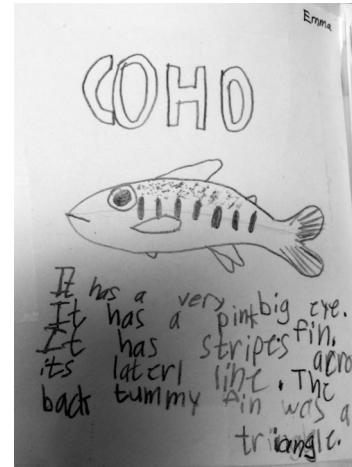 Emma
COHO
It has a very big eye.
It has a pink fin.
It has stripes acro
its laterl line. The
back tummy fin was a
triangle.